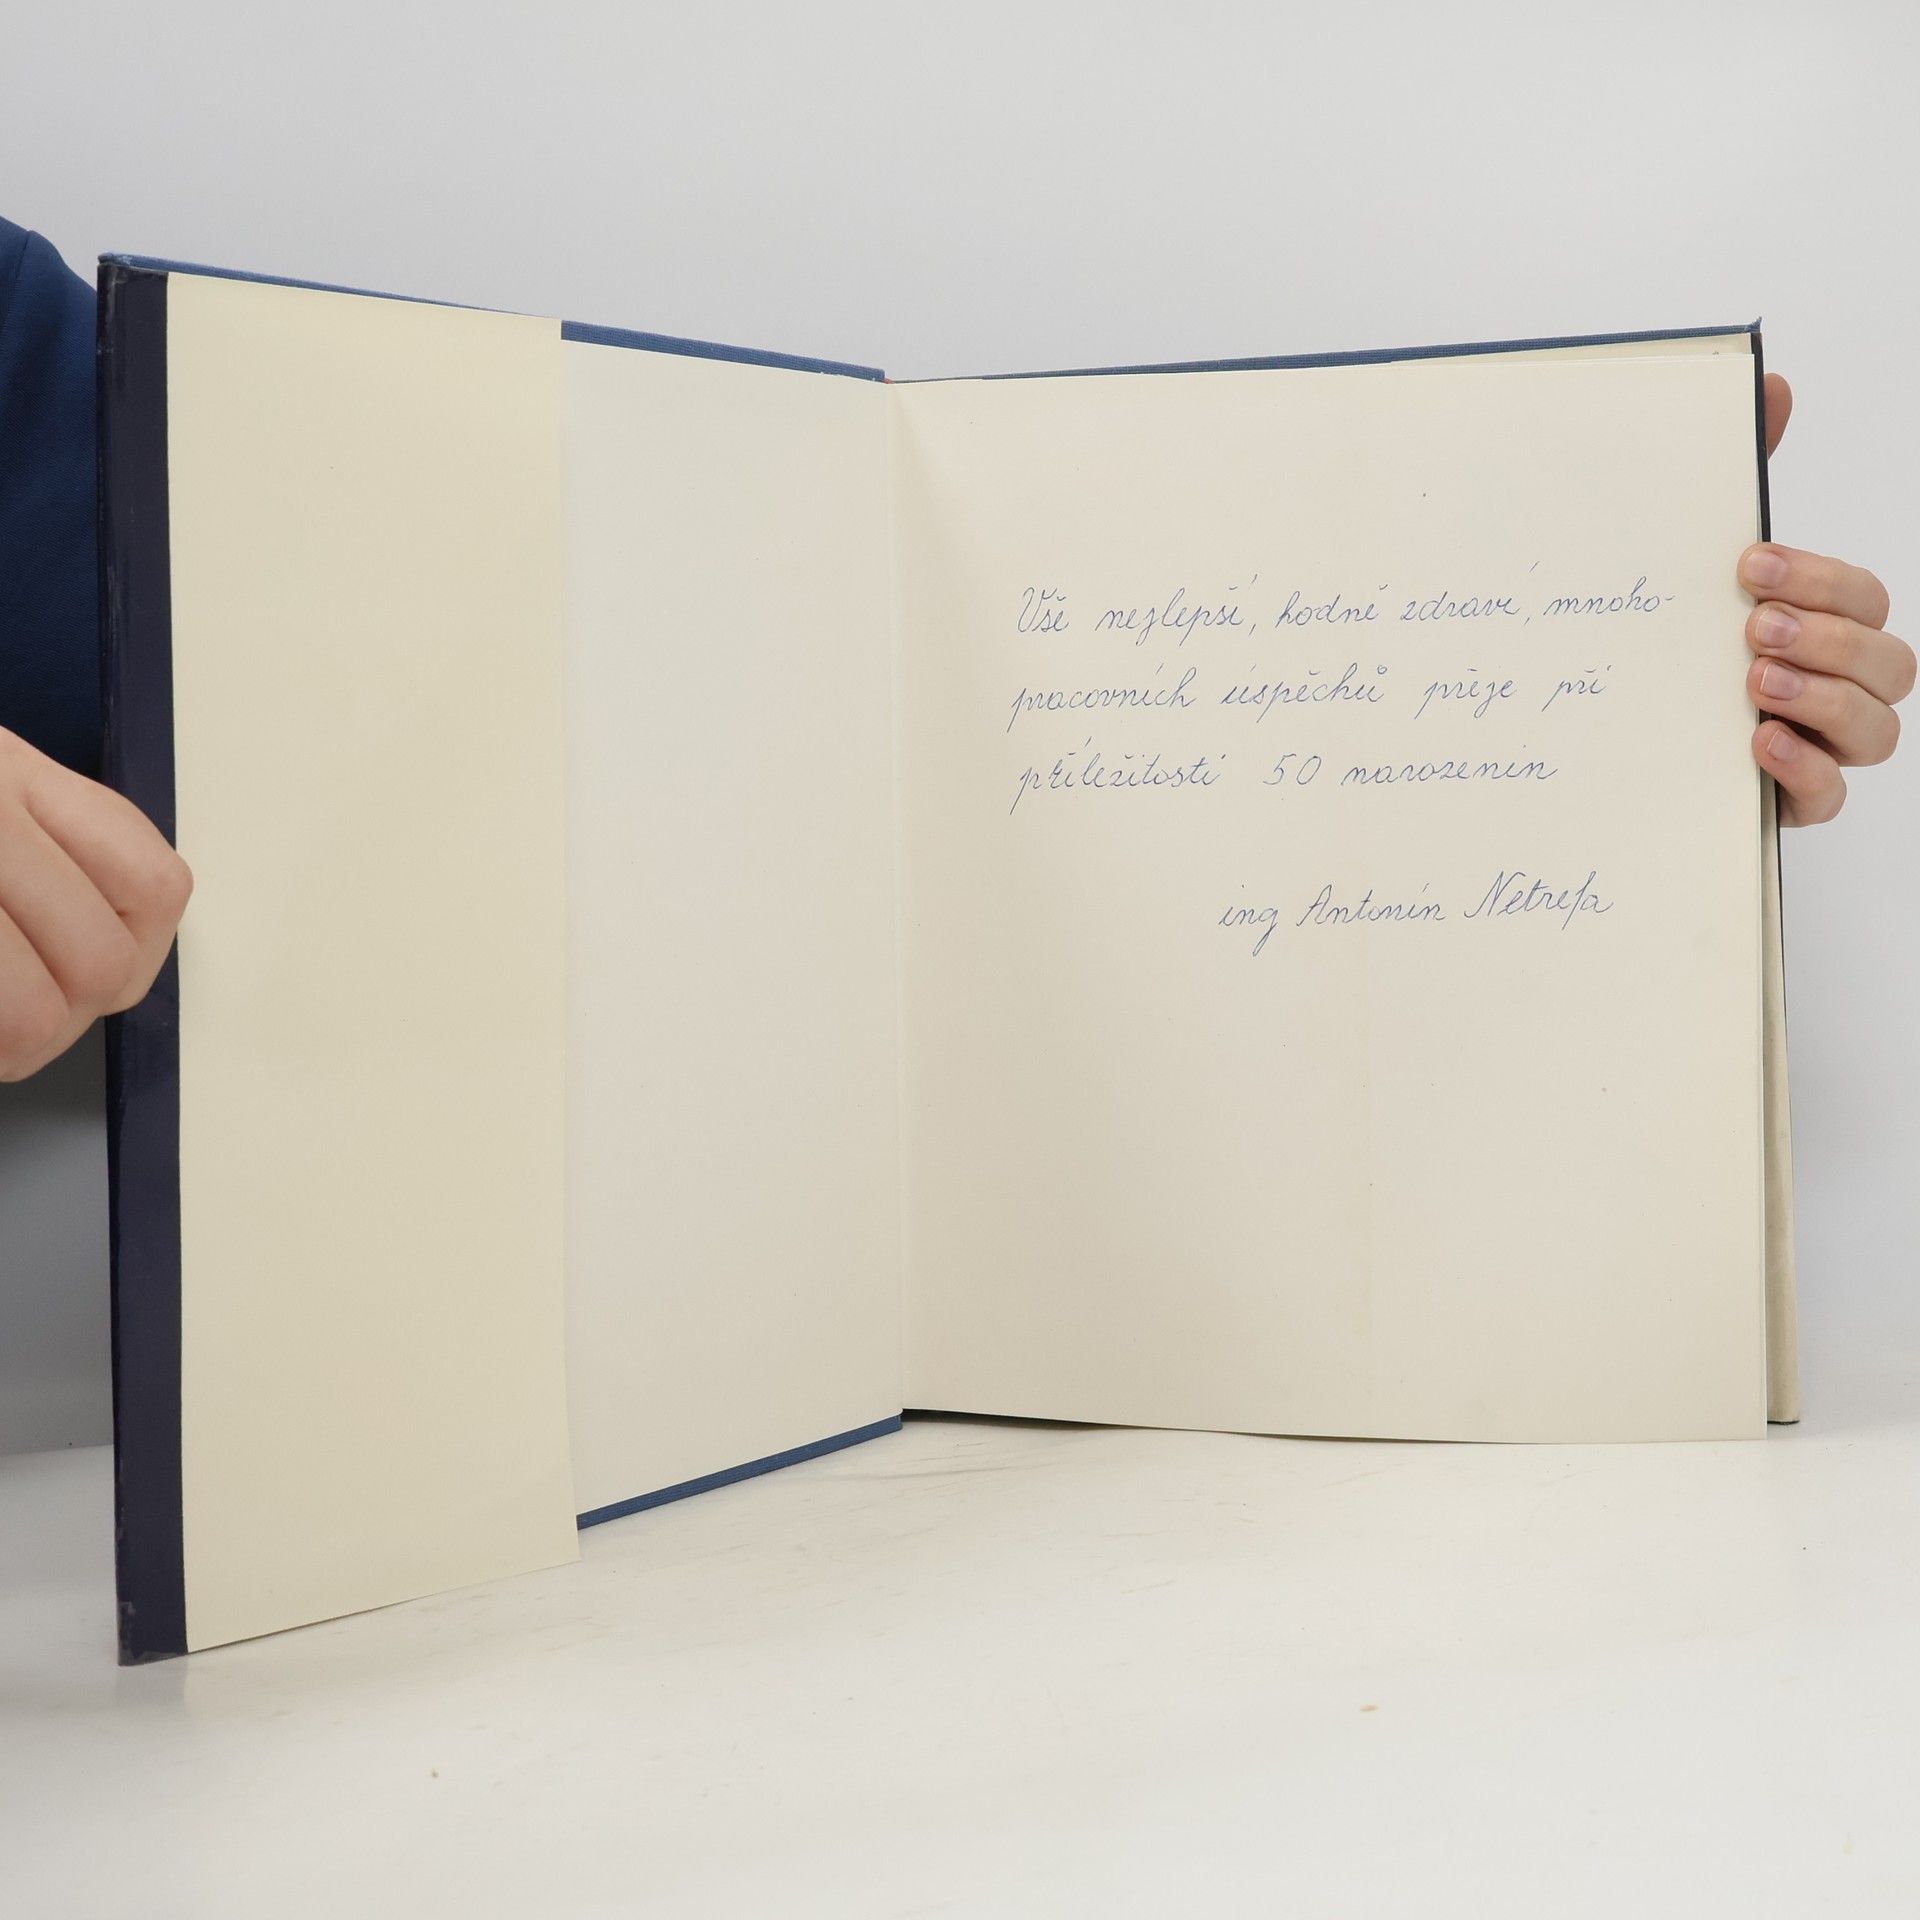 Vše nejlepší, hodně zdraví, mnoho-
pracovních úspěchů přeje při
příležitosti 50 narozenin
ing Antonín